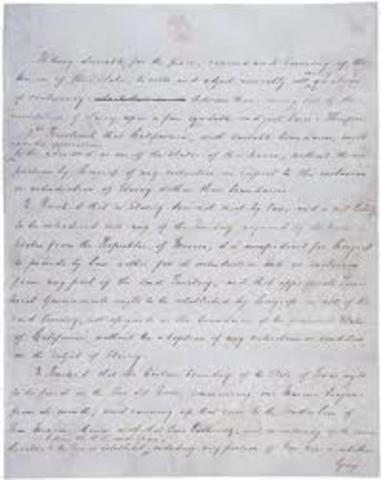 It being desirable, for the peace, concord and harmony of the
Union of these States, to settle and adjust amicably all questions
of controversy between them arising out of the
institution of Slavery, upon a fair equitable and just basis: Therefore
1st Resolved that California, with suitable boundaries, ought
upon her application
to be admitted as one of the States of this Union, without the im
position by Congress of any restriction in respect to the exclusion
or introduction of Slavery within those boundaries
2. Resolved that as Slavery does not exist by law, and is not likely
to be introduced into any of the Territory acquired by the United
States from the Republic of Mexico, it is inexpedient for Congress
to provide by law either for its introduction into or exclusion
from any part of the said Territory; and that appropriate Terri
torial Governments ought to be established by Congress in all of the
said Territory, not assigned as the boundaries of the proposed State
of California, without the adoption of any restriction or condition
on the subject of Slavery
3. Resolved that the Western boundary of the State of Texas ought
to be fixed on the Rio del Norte, commencing one Marine league
from its mouth, and running up that river to the Southern line of
New Mexico, thence with that line Eastwardly, and continuing in the same
between the U.S. and Spain
direction to the line as established, excluding any portion of New Mexico whether
lying